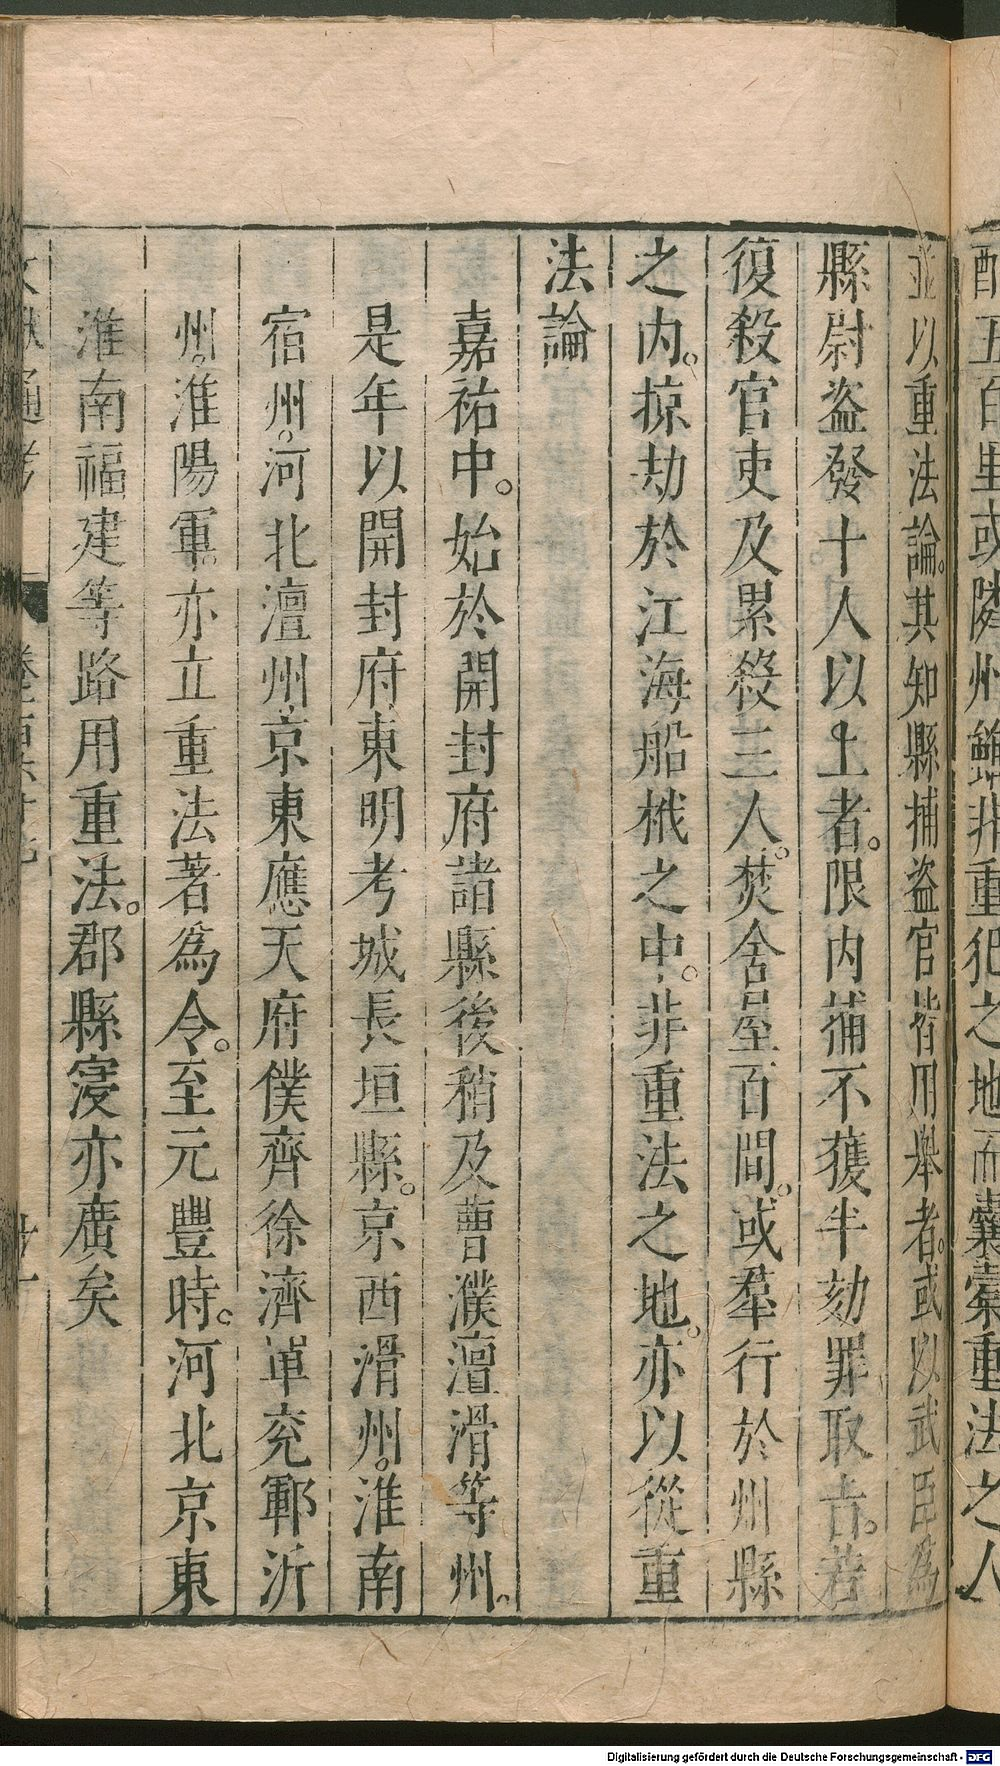 配五百里或隣州雖非重犯之地而囊橐重法之人
並以重法論其知縣捕盜官皆用舉者或以武臣爲
縣尉盜發十人以上者限内捕不獲半劾罪取旨若
復殺官吏及累殺三人焚舍屋百間或羣行於州縣
之内掠劫於江海船栰之中非重法之地亦以從重
法論
嘉祐中始於開封府諸縣後稍及曹濮澶滑等州
是年以開封府東明考城長垣縣京西滑州淮南
宿州河北澶州京東應天府僕齊徐濟單兖鄆沂
州淮陽軍亦立重法著爲令至元豐時河北京東
淮南福建等路用重法郡縣寖亦廣矣
Digitalisierung gefördert durch die Deutsche Forschungsgemeinschaft - DFG